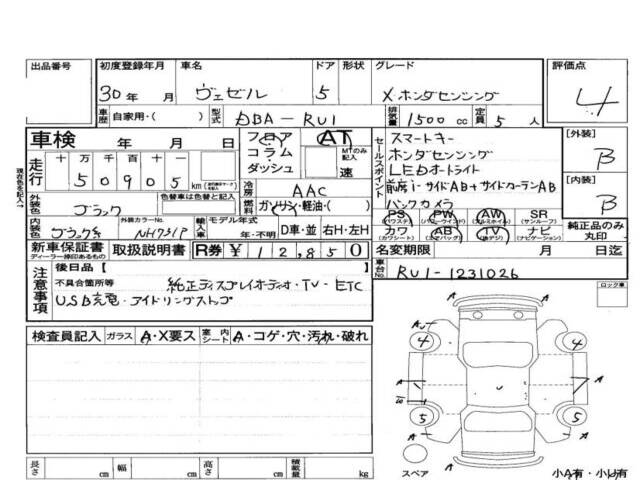 出品番号 初度登録年月 車名 ドア 形状 グレード 評価点
30年 月 ヴェゼル 5 X・ホンダセンシング 4
車歴 自家用・( ) 型式 DBA-RU1 排気量 1500cc 定員 5人
車検 年 月 日 フロア AT スマートキー [外装]
コラム MTのみ記入 ホンダセンシング B
走行 十 万 千 百 十 ダッシュ 速 LEDオートライト
50905 km 冷房 AAC セールスポイント 前席i-サイドAB+サイドカーテンAB [内装]
外装色 ブラック 色替車は色替と記入 燃料 ガソリン・軽油・( ) バックカメラ B
現在色を記入→
PS PW AW SR
(パワステ) (パワーウインド) (アルミホイル) (サンルーフ) 純正品のみ丸印
内装色 ブラック系 外装カラーNo. NH731P 輸入車 モデル年式 年・不明 D車・並 右H・左H カワ AB TV ナビ
(カワシート) (エアバッグ) (地デジ) (ナビゲーション)
新車保証書 取扱説明書 R券 ¥12,850 名変期限 月 日迄
ディーラー捺印あるもの
注意事項 後日品[ ] 車台No. RU1-1231026
不具合箇所等 純正ディスプレイオーディオ・TV・ETC
USB充電・アイドリングストップ
ロック車
検査員記入 ガラス A・X要ス 室内シート A・コゲ・穴・汚れ・破れ
A
4 4
A A A
5 5
A
スペア 小A有・小U有
長さ cm 幅 cm 高さ cm 積載量 kg